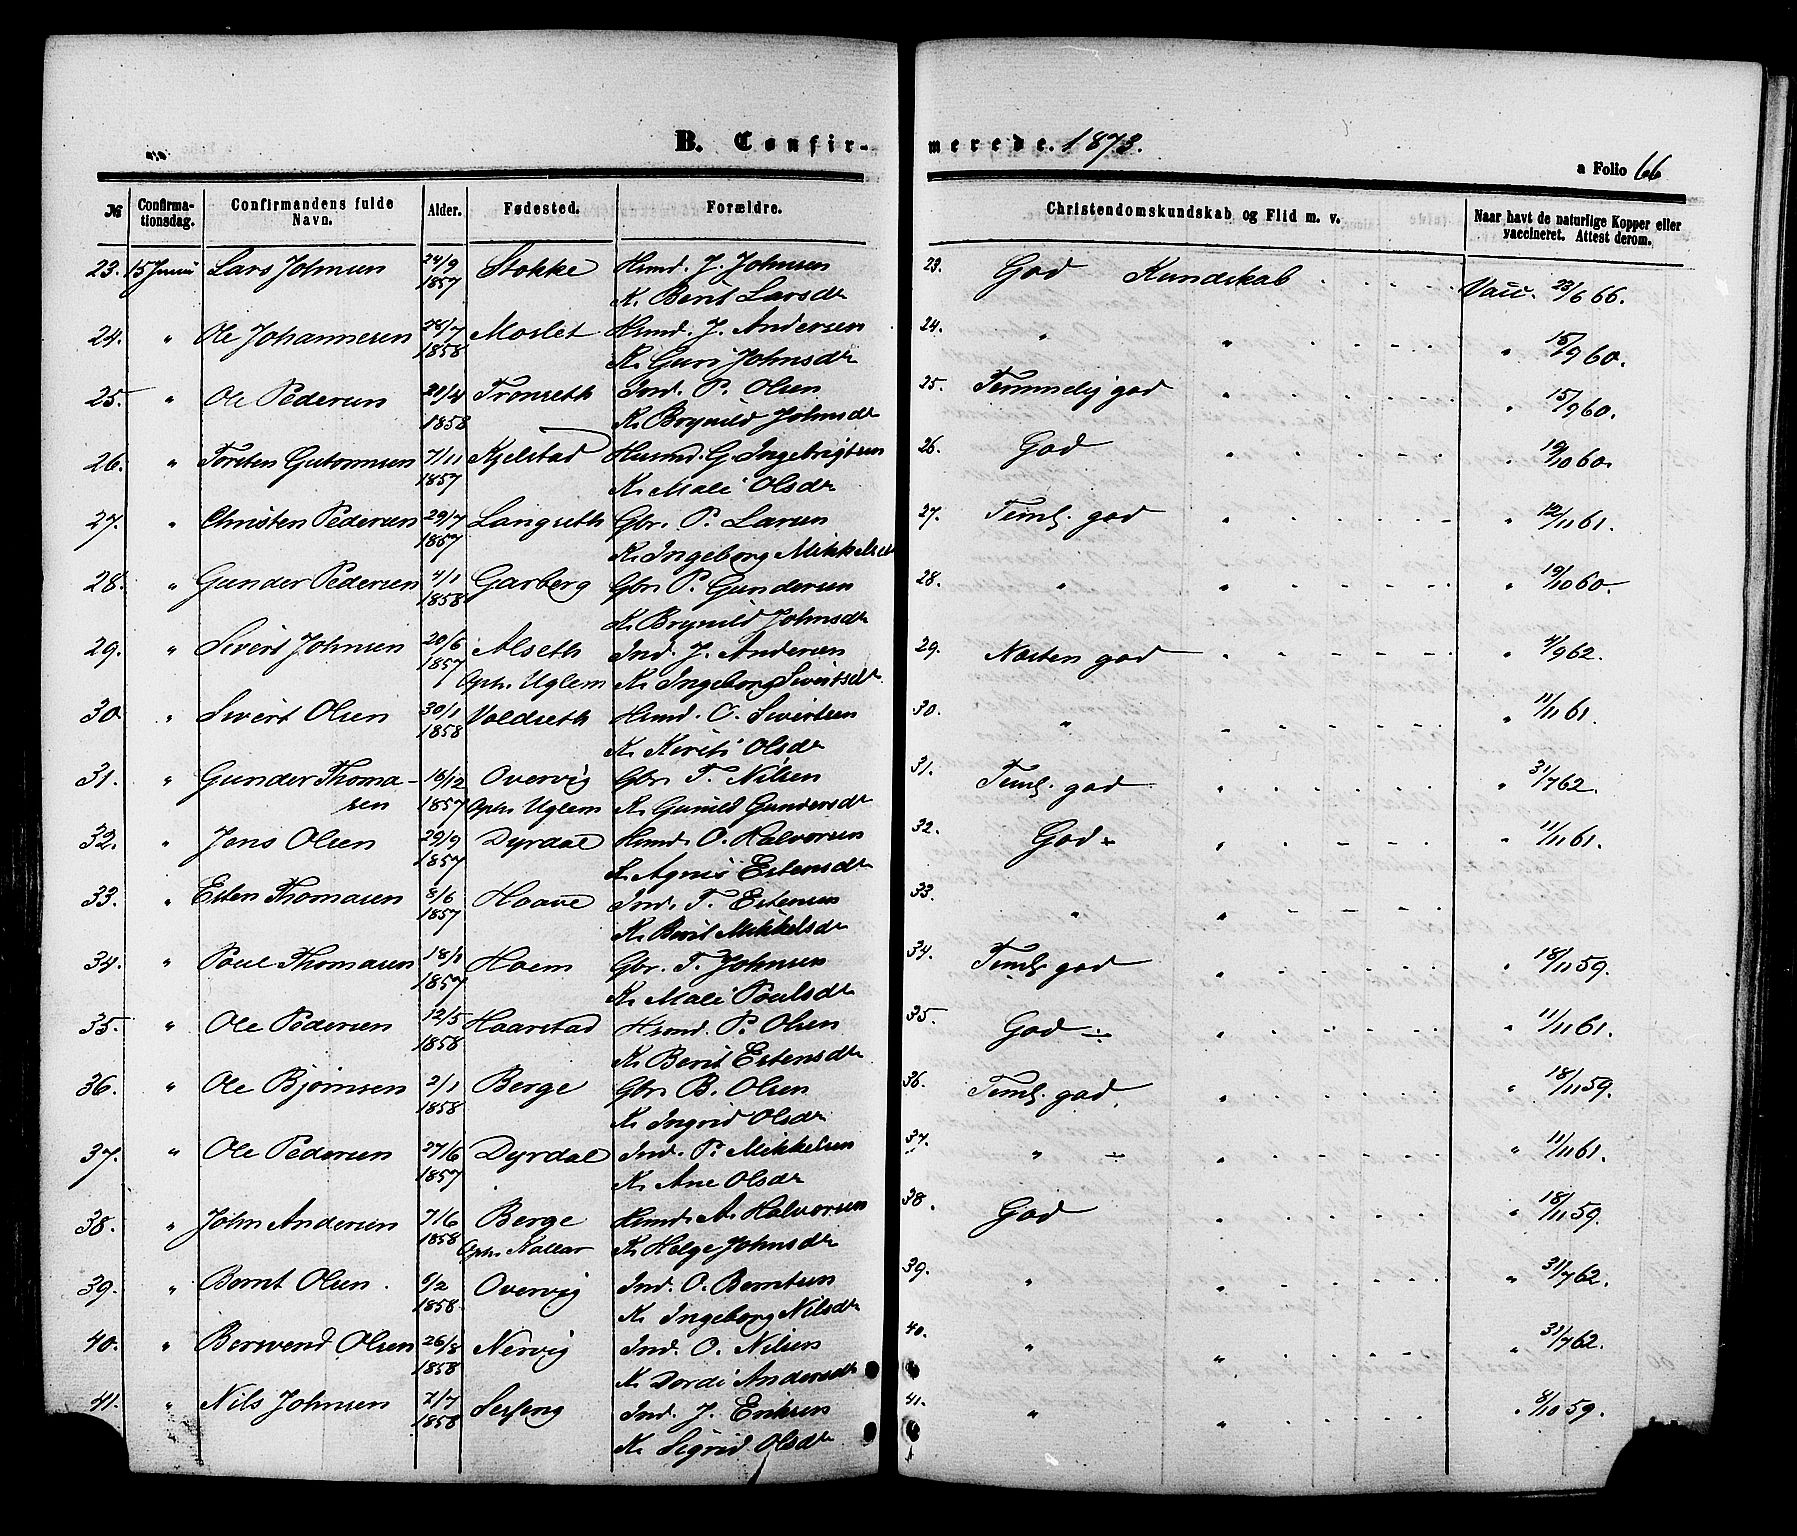 B. Confirmerede. 1873.
a Folio 66
№ Confirmationsdag. Confirmandens fulde Navn. Alder. Fødested. Forældre. Christendomskundskab og Flid m. v. Naar havt de naturlige Kopper eller vaccineret. Attest derom.
23. 15 Juni Lars Johnsen 24/9 Stokke Hsmd. J. Johnsen 23. God Kundskab Vacc. 23/6 66.
1857 K. Berit Larsdr
24. " Ole Johannesen 28/7 Moslet Hsmd. J. Andersen 24. " " " 15/9 60.
1858 K. Guri Johnsdr
25. " Ole Pedersen 21/4 Tronseth Ind. P. Olsen 25. Temmelig god " " 15/9 60.
1858 K. Brynild Johnsdr
26. " Torsten Gutormsen 7/11 Kjelstad Husmd. G. Ingebrigtsen 26. God " " 19/10 60.
1857 K. Mali Olsdr
27. " Christen Pedersen 29/7 Langseth Gbr. P. Larsen 27. Teml. god " " 12/11 61.
1857 K. Ingeborg Mikkelsd
28. " Gunder Pedersen 4/1 Garberg Gbr. P. Gundersen 28. " " " 19/10 60.
1858 K. Brynild Johnsdr
29. " Sivert Johnsen 20/6 Alseth Ind. J. Andersen 29. Næsten god " " 4/9 62.
1857 Oph. Uglem K. Ingeborg Sivertsdr
30. " Sivert Olsen 30/1 Voldseth Hsmd. O. Sivertsen 30. " " " 11/11 61.
1858 K. Kirsti Olsdr
31. " Gunder Thoma- 16/12 Overvig Gbr. T. Nilsen 31. Teml. god " " 31/7 62.
sen 1857 Oph. Uglem K. Gunild Gundersdr
32. " Jens Olsen 29/9 Dyrdal Hsmd. O. Halvorsen 32. God " " 11/11 61.
1857 K. Agnis Estensdr
33. " Esten Thomasen 8/6 Haave Ind. T. Estensen 33. " "
1857 K. Berit Mikkelsdr
34. " Poul Thomasen 18/1 Hoem Gbr. T. Johnsen 34. Teml. god " " 18/11 59.
1857 K. Mali Poulsdr
35. " Ole Pedersen 12/5 Haarstad Hsmd. P. Olsen 35. God " " 11/11 61.
1858 K. Berit Estensdr
36. " Ole Bjørnsen 2/1 Berge Gbr. B. Olsen 36. Teml. god. " " 18/11 59.
1858 K. Ingrid Olsdr
37. " Ole Pedersen 27/6 Dyrdal Ind. P. Mikkelsen 37. " " " 11/11 61.
1857 K. Ane Olsdr
38. " John Andersen 7/6 Berge Hsmd. A. Halvorsen 38. God " " 18/11 59.
1858 Oph. Kallar K. Helge Johnsdr
39. " Bernt Olsen 5/2 Overvig Ind. O. Berntsen 39. " " " 31/7 62.
1858. K. Ingeborg Nilsdr
40. " Bervend Olsen 26/8 Nervig Ind. O. Nilsen 40. " " " 31/7 62.
1858 K. Dordi Andersdr
41. " Nils Johnsen 7/7 Sesseng Ind. J. Eriksen 41. " " " 8/10 59.
1858 K. Sigrid Olsdr